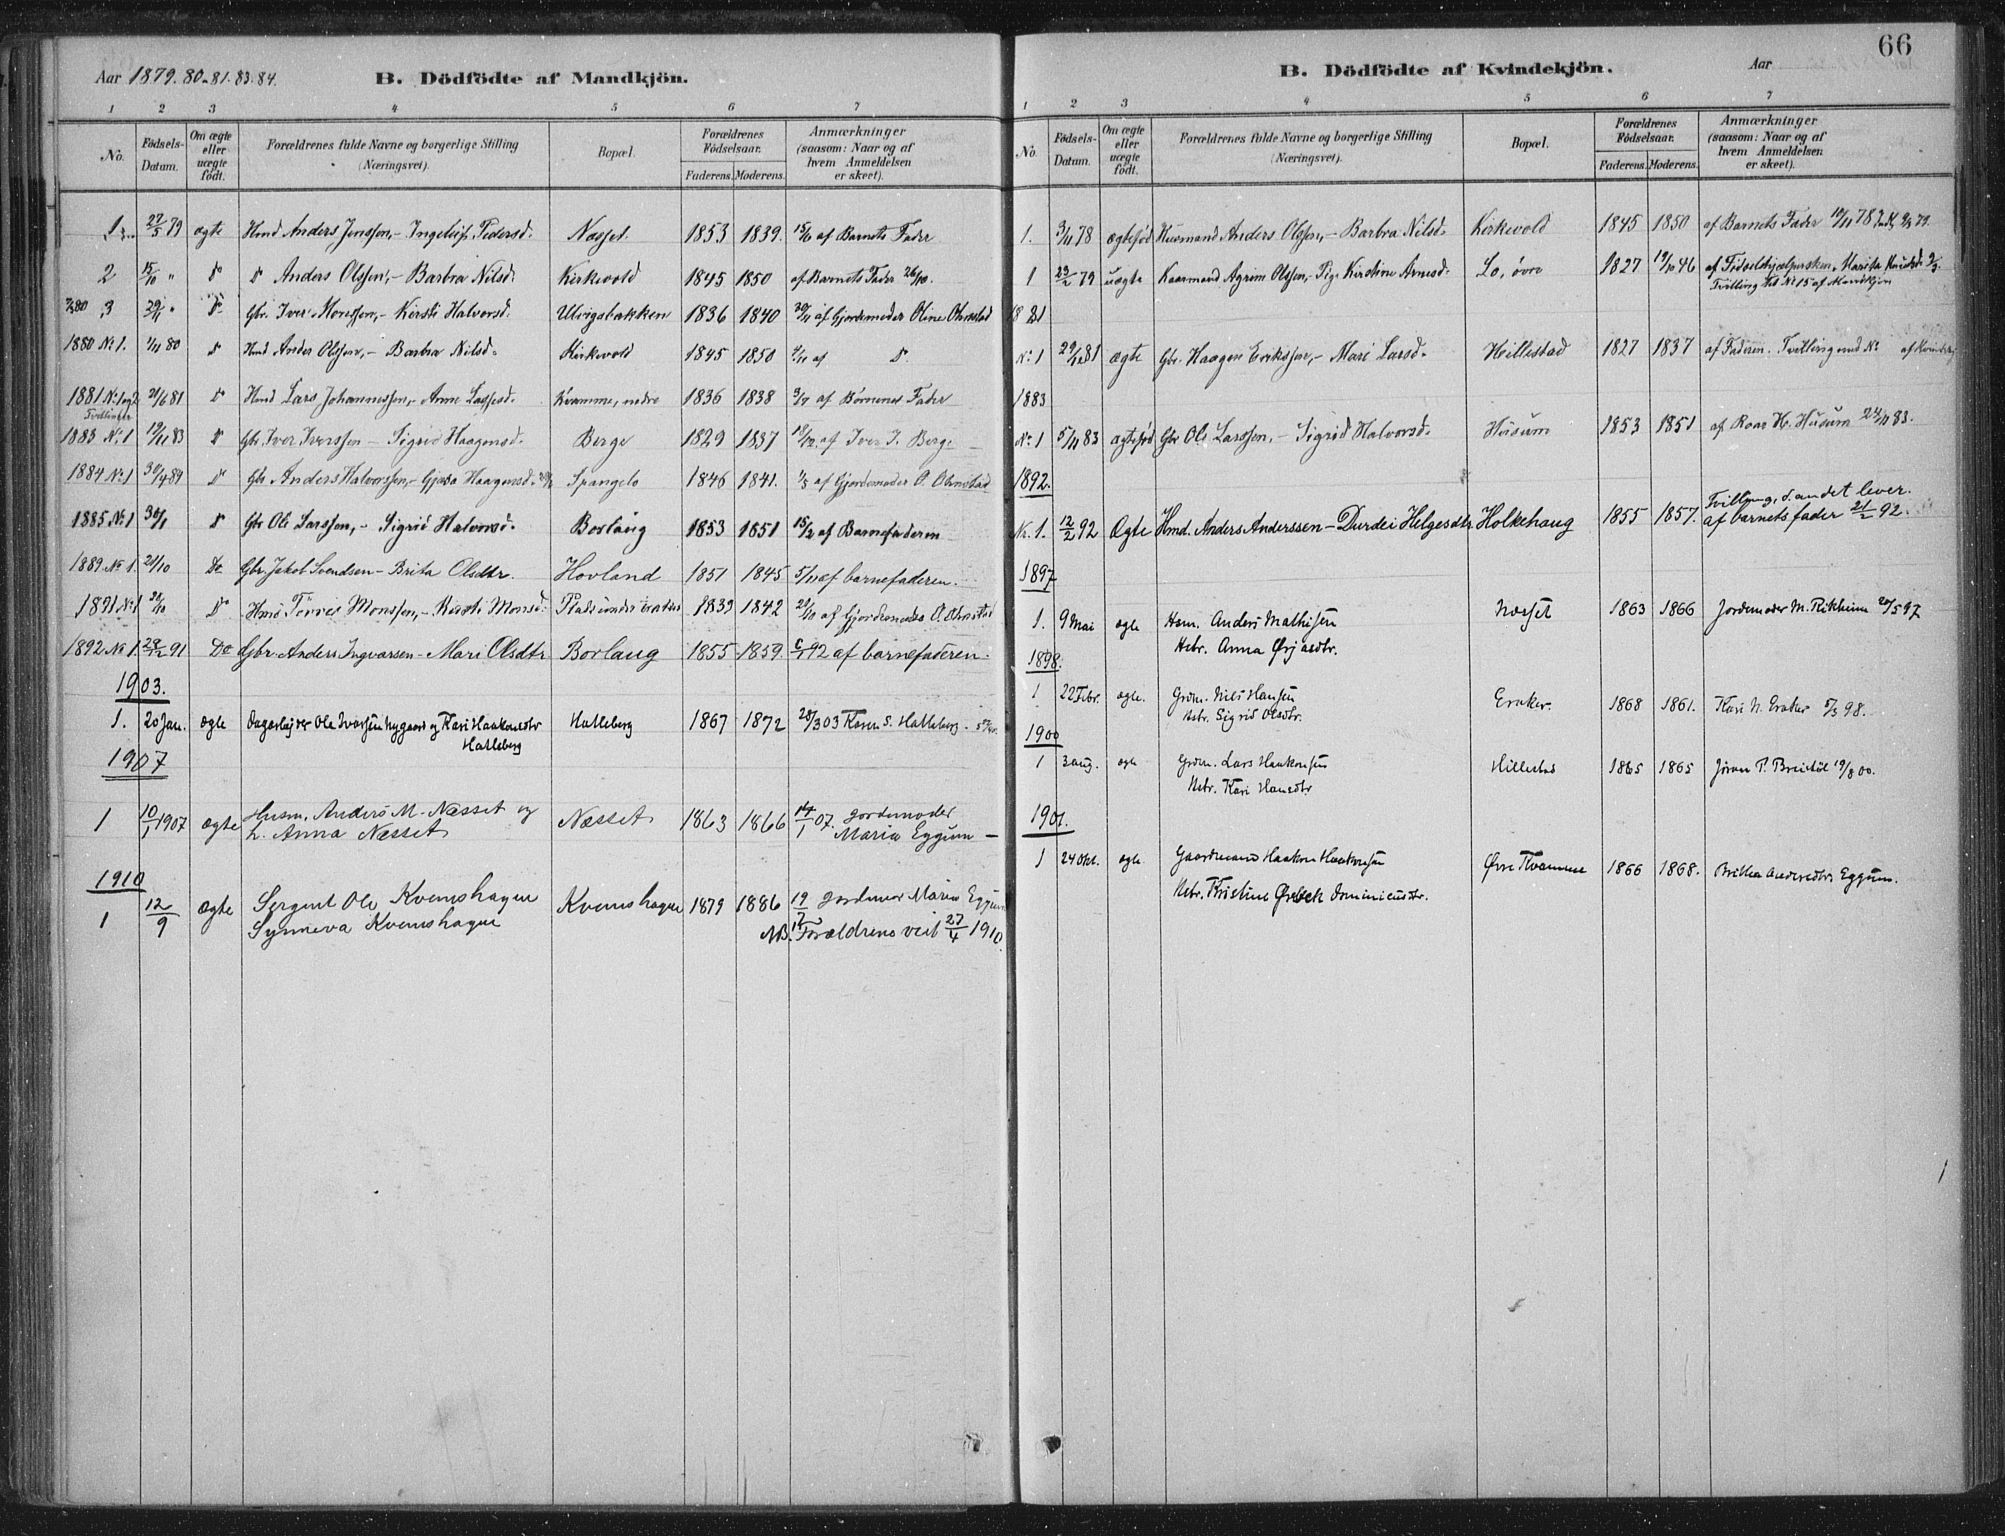 Aar 1879. 80. 81. 83. 84.
B. Dödfödte af Mandkjön.
1 2 3 4 5 6 7
No.
Födsels-Datum.
Om ægte eller uægte födt.
Forældrenes fulde Navne og borgerlige Stilling (Næringsvei).
Bopæl.
Forældrenes Födselsaar.
Faderens. Moderens.
Anmærkninger (saasom: Naar og af hvem Anmeldelsen er skeet).
1 27/5 79 ægte Hmd Anders Jonssøn,- Pedersd. Næsset. 1853 1839. 15/6 af Barnets Fader
2 15/10 " do do Anders Olssøn,- Barbra Nilsd. Kirkevold 1845 1850 af Barnets Fader 26/10.
3 29/11 " do Gbr. Iver Monssøn,- Kirsti Halvorsd. Ulvigsbakken 1836 1840 af Gjordemoder Oline Ohnstad
1880 No 1. 1/11 80 do Hmd Anders Olssøn,- Barbra Nilsd. Kirkevold 1845 1850 af do
1881 21/6 81 do Hmd Lars Johannessøn,- Anne Lassesd. Kvamme, nedre 1836 1838 3/7 af Børnenes Fader
Tvillinger
1883 No 1 12/11 83 do Gbr. Iver Iverssøn - Sigrid Haagensd. Berge 1829 1837 af Iver I. Berge
1884 No 1 do Gbr Anders Halvorssøn,- Haagensd. Spangelo 1846 1841. 1/5 af Gjordemoder O. Ohnstad
1885 No 1 30/1 do Gbr Ole Larssøn,- Sigrid Halvorsd. Borlaug 1853 1851 15/2 af Barnefaderen
1889 No 1. 21/10 Do Gbr. Jakob Svendsen - Brita Olsdtr. Hovland 1851 1845 5/11 af barnefaderen.
1891 No 1 do Hmd Monssøn,- Kirsti Monsd. 1839 1842 af Gjordemoder O. Ohnstad
1892 No 1. 28/12 91 Do Gbr. Anders Ingvarsen - Mari Olsdtr Borlaug 1855 1859 6/1 92 af barnefaderen.
1903.
1. 20 Jan. ægte Dagarbejder Ole Ivarsen Nygaard og Kari Haakonsdtr Hatleberg 1867 1872 28/3 03 Karen S. Hatleberg.
Hatleberg
1907
1 10/1 1907 ægte Husm. Anders M. Næsset og Næsset 1863 1866 14/1 07. Jordemoder
h. Anna Næsset Maria Eggum
1910
1 12/9 ægte Sergent Ole Kvemshagen Kvemshagen 1879 1886 Maria Eggum
Synneva Kvemshagen NB. Forældrene viet 27/4 1910.
66
B. Dödfödte af Kvindekjön.
Aar
1 2 3 4 5 6 7
No.
Födsels-Datum.
Om ægte eller uægte födt.
Forældrenes fulde Navne og borgerlige Stilling (Næringsvei).
Bopæl.
Forældrenes Födselsaar.
Faderens. Moderens.
Anmærkninger (saasom: Naar og af hvem Anmeldelsen er skeet).
1. 3/11 78 ægtefød Huusmand Anders Olssøn,- Barbra Nilsd. Kirkevold 1845 1850 af Barnets Fader
1 23/2 79 uægte Kaarmand Agrim Olssøn,- Pige Kirstine Arnesd. Lo, øvre 1827 19/10 46 af Fødselshjælpersken, Marita
Tvilling til No 15 af Mandkjøn
1881
No 1 29/12 81 ægte Gbr. Haagen Erikssøn,- Mari Larsd. Hillestad 1827 1837 af Faderen. Tvilling med No af Kvindekj.
1883
No 1 5/11 83 ægtefød Gbr Ole Larssøn,- Sigrid Halvorsd. Husum 1853 1851 af Roar H. Husum 24/11 83.
1892.
No. 1. 12/2 92 Ægte Hmd. Anders Anderssen - Durdei Helgesdtr Holkehaug 1855 1857. Tvilling, d. andet lever.
af barnets fader 21/2 92.
1897
1. 9 Mai ægte Hsm. Anders Mathisen Næsset 1863 1866 Jordemoder M. Rikheim 20/5 97
Hstr. Anna Ørjasdtr.
1898.
1 22 Febr. ægte. Grdm. Nils Hansen Eraker. 1868 1861. Kari N. Eraker 5/3 98.
Hstr. Sigrid Olsdtr.
1900
1 3 aug. ægte Grdm. Lars Haakonsen Hillestad 1865 1865 Jøran P. Breistøl 19/8 00.
Hstr. Kari Hansdtr
1901.
1 24 Okt. ægte Gaardmand Haakon Haakonsen Øvre Kvamme 1866 1868. Brithe Andersdtr. Eggum.
Hstr. Kristine Ørbech Dominicusdtr.